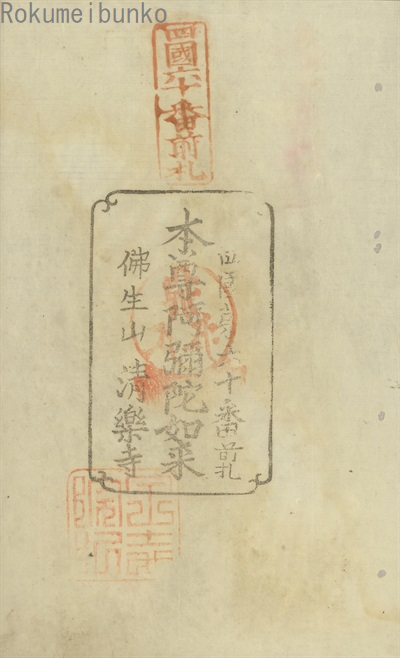 Rokumeibunko
四國六十番前札
四国六十番前札
本尊阿彌陀如来
佛生山 清樂寺